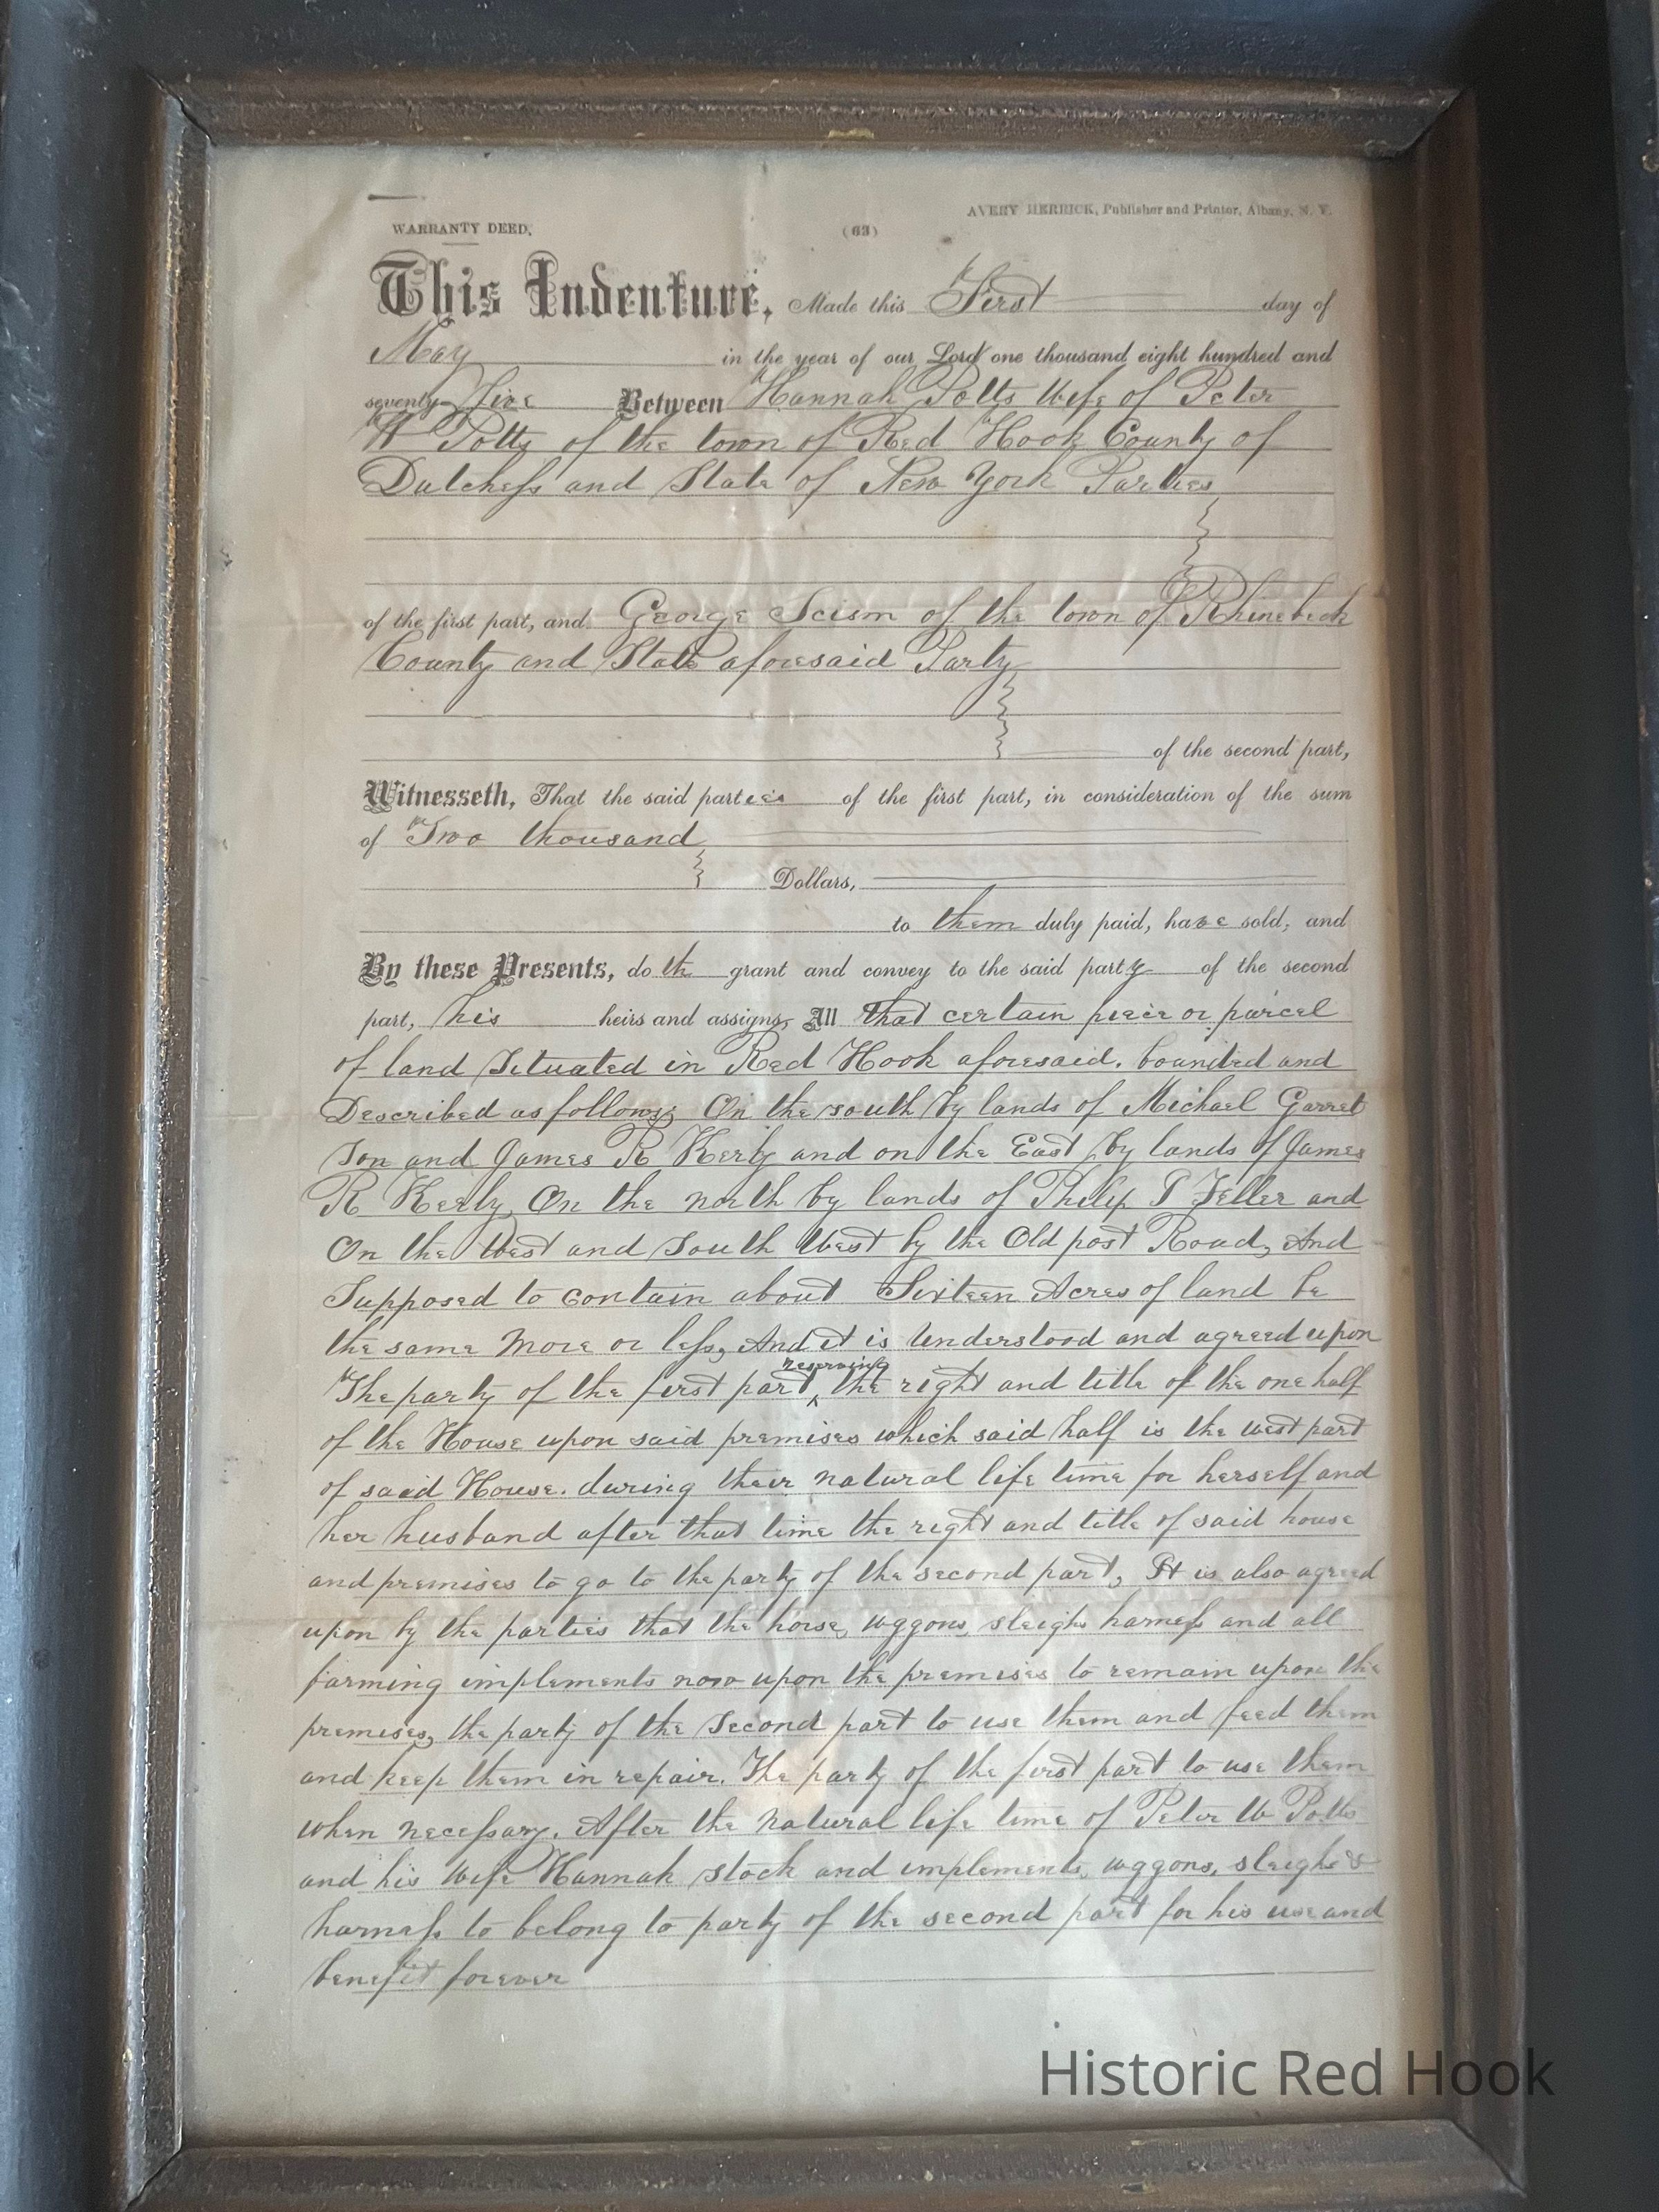 AVERY HERRICK, Publisher and Printer, Albany, N. Y.
WARRANTY DEED, (63)
This Indenture, Made this First day of
May in the year of our Lord one thousand eight hundred and
seventy-five Between Hannah Potts Wife of Peter
W Potts of the town of Red Hook County of
Dutchess and State of New York Parties
of the first part, and George Scism of the town of Rhinebeck
County and State aforesaid Party
of the second part,
Witnesseth, That the said parties of the first part, in consideration of the sum
of Two thousand
Dollars,
to them duly paid, have sold, and
By these Presents, doth grant and convey to the said party of the second
part, his heirs and assigns, All that certain peice or parcel
of land Situated in Red Hook aforesaid. bounded and
Described as follows; On the south by lands of Michael Garret
Son and James R Kerly and on the East by lands of James
R Kerly, On the north by lands of Philip P Feller and
On the West and South West by the Old post Road, And
Supposed to contain about Sixteen Acres of land be
the same More or less, And it is Understood and agreed upon
The party of the first part reserving the right and title of the one half
of the House upon said premises which said half is the west part
of said House. during their natural life time for herself and
her husband after that time the right and title of said house
and premises to go to the party of the second part, It is also agreed
upon by the parties that the horse, wggons, sleighs harness and all
farming implements now upon the premises to remain upon the
premises, the party of the Second part to use them and feed them
and keep them in repair. The party of the first part to use them
when necessary. After the Natural life time of Peter W Potts
and his Wife Hannah stock and implements, wggons, sleighs &
harness to belong to party of the second part for his use and
benefit forever
Historic Red Hook